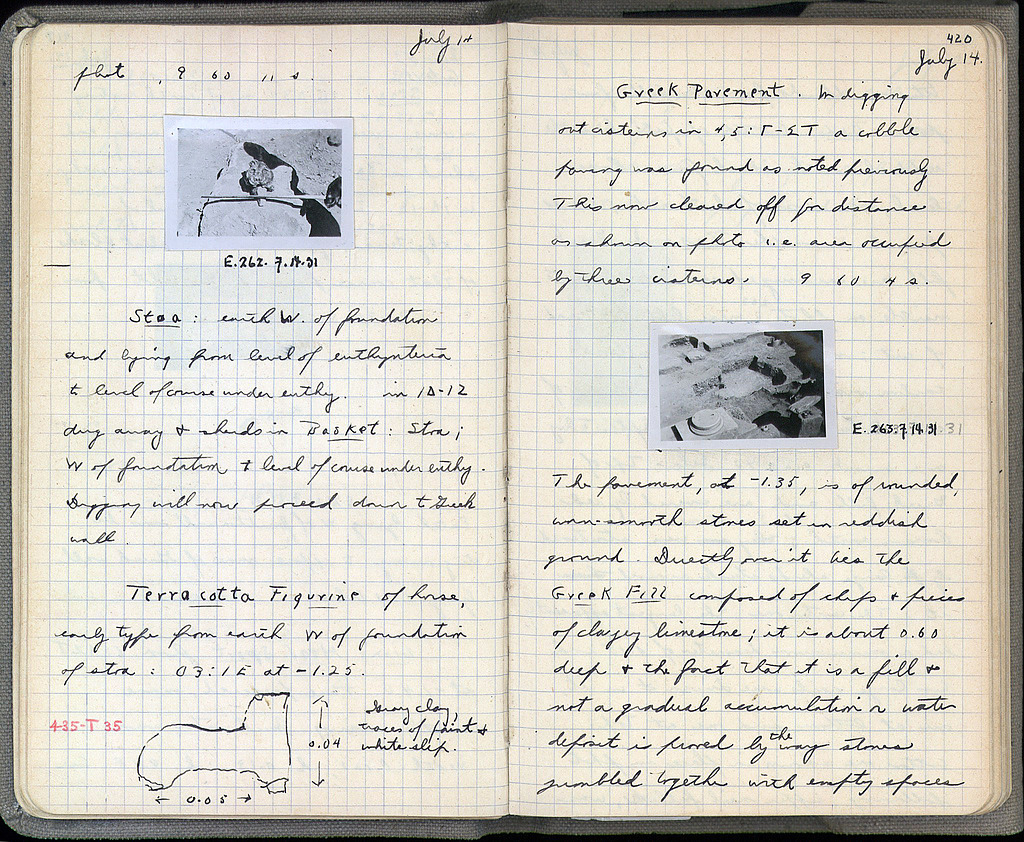 July 14
photo, 9 60 11 s.
E.262. 7.14.31
Stoa : earth W. of foundation
and lying from level of euthynteria
to level of course under euthy. in 1Δ-12
dug away & sherds in Basket : Stoa ;
W of foundation & level of course under euthy.
Digging will now proceed down to Greek
wall.
Terracotta Figurine of horse,
early type from earth W of foundation
of stoa : 03 : 1E at -1.25.
435-T 35
0.04
0.05
Gray clay,
traces of paint &
white slip.
420
July 14.
Greek Pavement. In digging
out cisterns in 4,5 : Γ-ΣΤ a cobble
paving was found as noted previously
This now cleared off for distance
as shown on photo i.e. area occupied
by three cisterns. 9 60 4 s.
E. 263. 7.14.31
The pavement, at -1.35, is of rounded,
worn-smooth stones set in reddish
ground. Directly over it lies the
Greek Fill composed of chips & pieces
of clayey limestone ; it is about 0.60
deep & the fact that it is a fill &
not a gradual accumulation or water
deposit is proved by the way stones
jumbled together with empty spaces